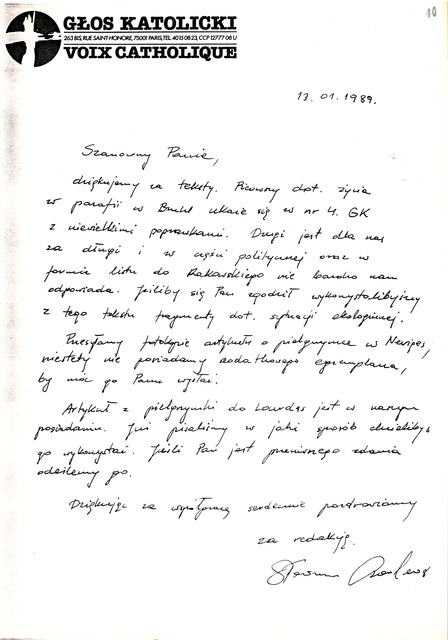 10
GŁOS KATOLICKI
263 BIS, RUE SAINT-HONORE, 75001 PARIS, TEL. 40 15 08 23, CCP 12777 08 U
VOIX CATHOLIQUE
13. 01. 1989.
Szanowny Panie,
dziękujemy za teksty. Pierwszy dot. życia
w parafii w Bruhl ukaże się w nr 4. GK
z niewielkimi poprawkami. Drugi jest dla nas
za długi i w części politycznej oraz w
formie listu do Rakowskiego nie bardzo nam
odpowiada. Jeśliby się Pan zgodził wykorzystalibyśmy
z tego tekstu fragmenty dot. sytuacji ekologicznej.
Przesyłamy fotokopię artykułu o pielgrzymce w Neviges,
niestety nie posiadamy dodatkowego egzemplarza,
by móc go Panu wysłać.
Artykuł z pielgrzymki do Lourdes jest w naszym
posiadaniu. Już pisaliśmy w jaki sposób chcielibyśmy
go wykorzystać. Jeśli Pan jest przeciwnego zdania
odeślemy go.
Dziękując za współpracę serdecznie pozdrawiamy
za redakcję.